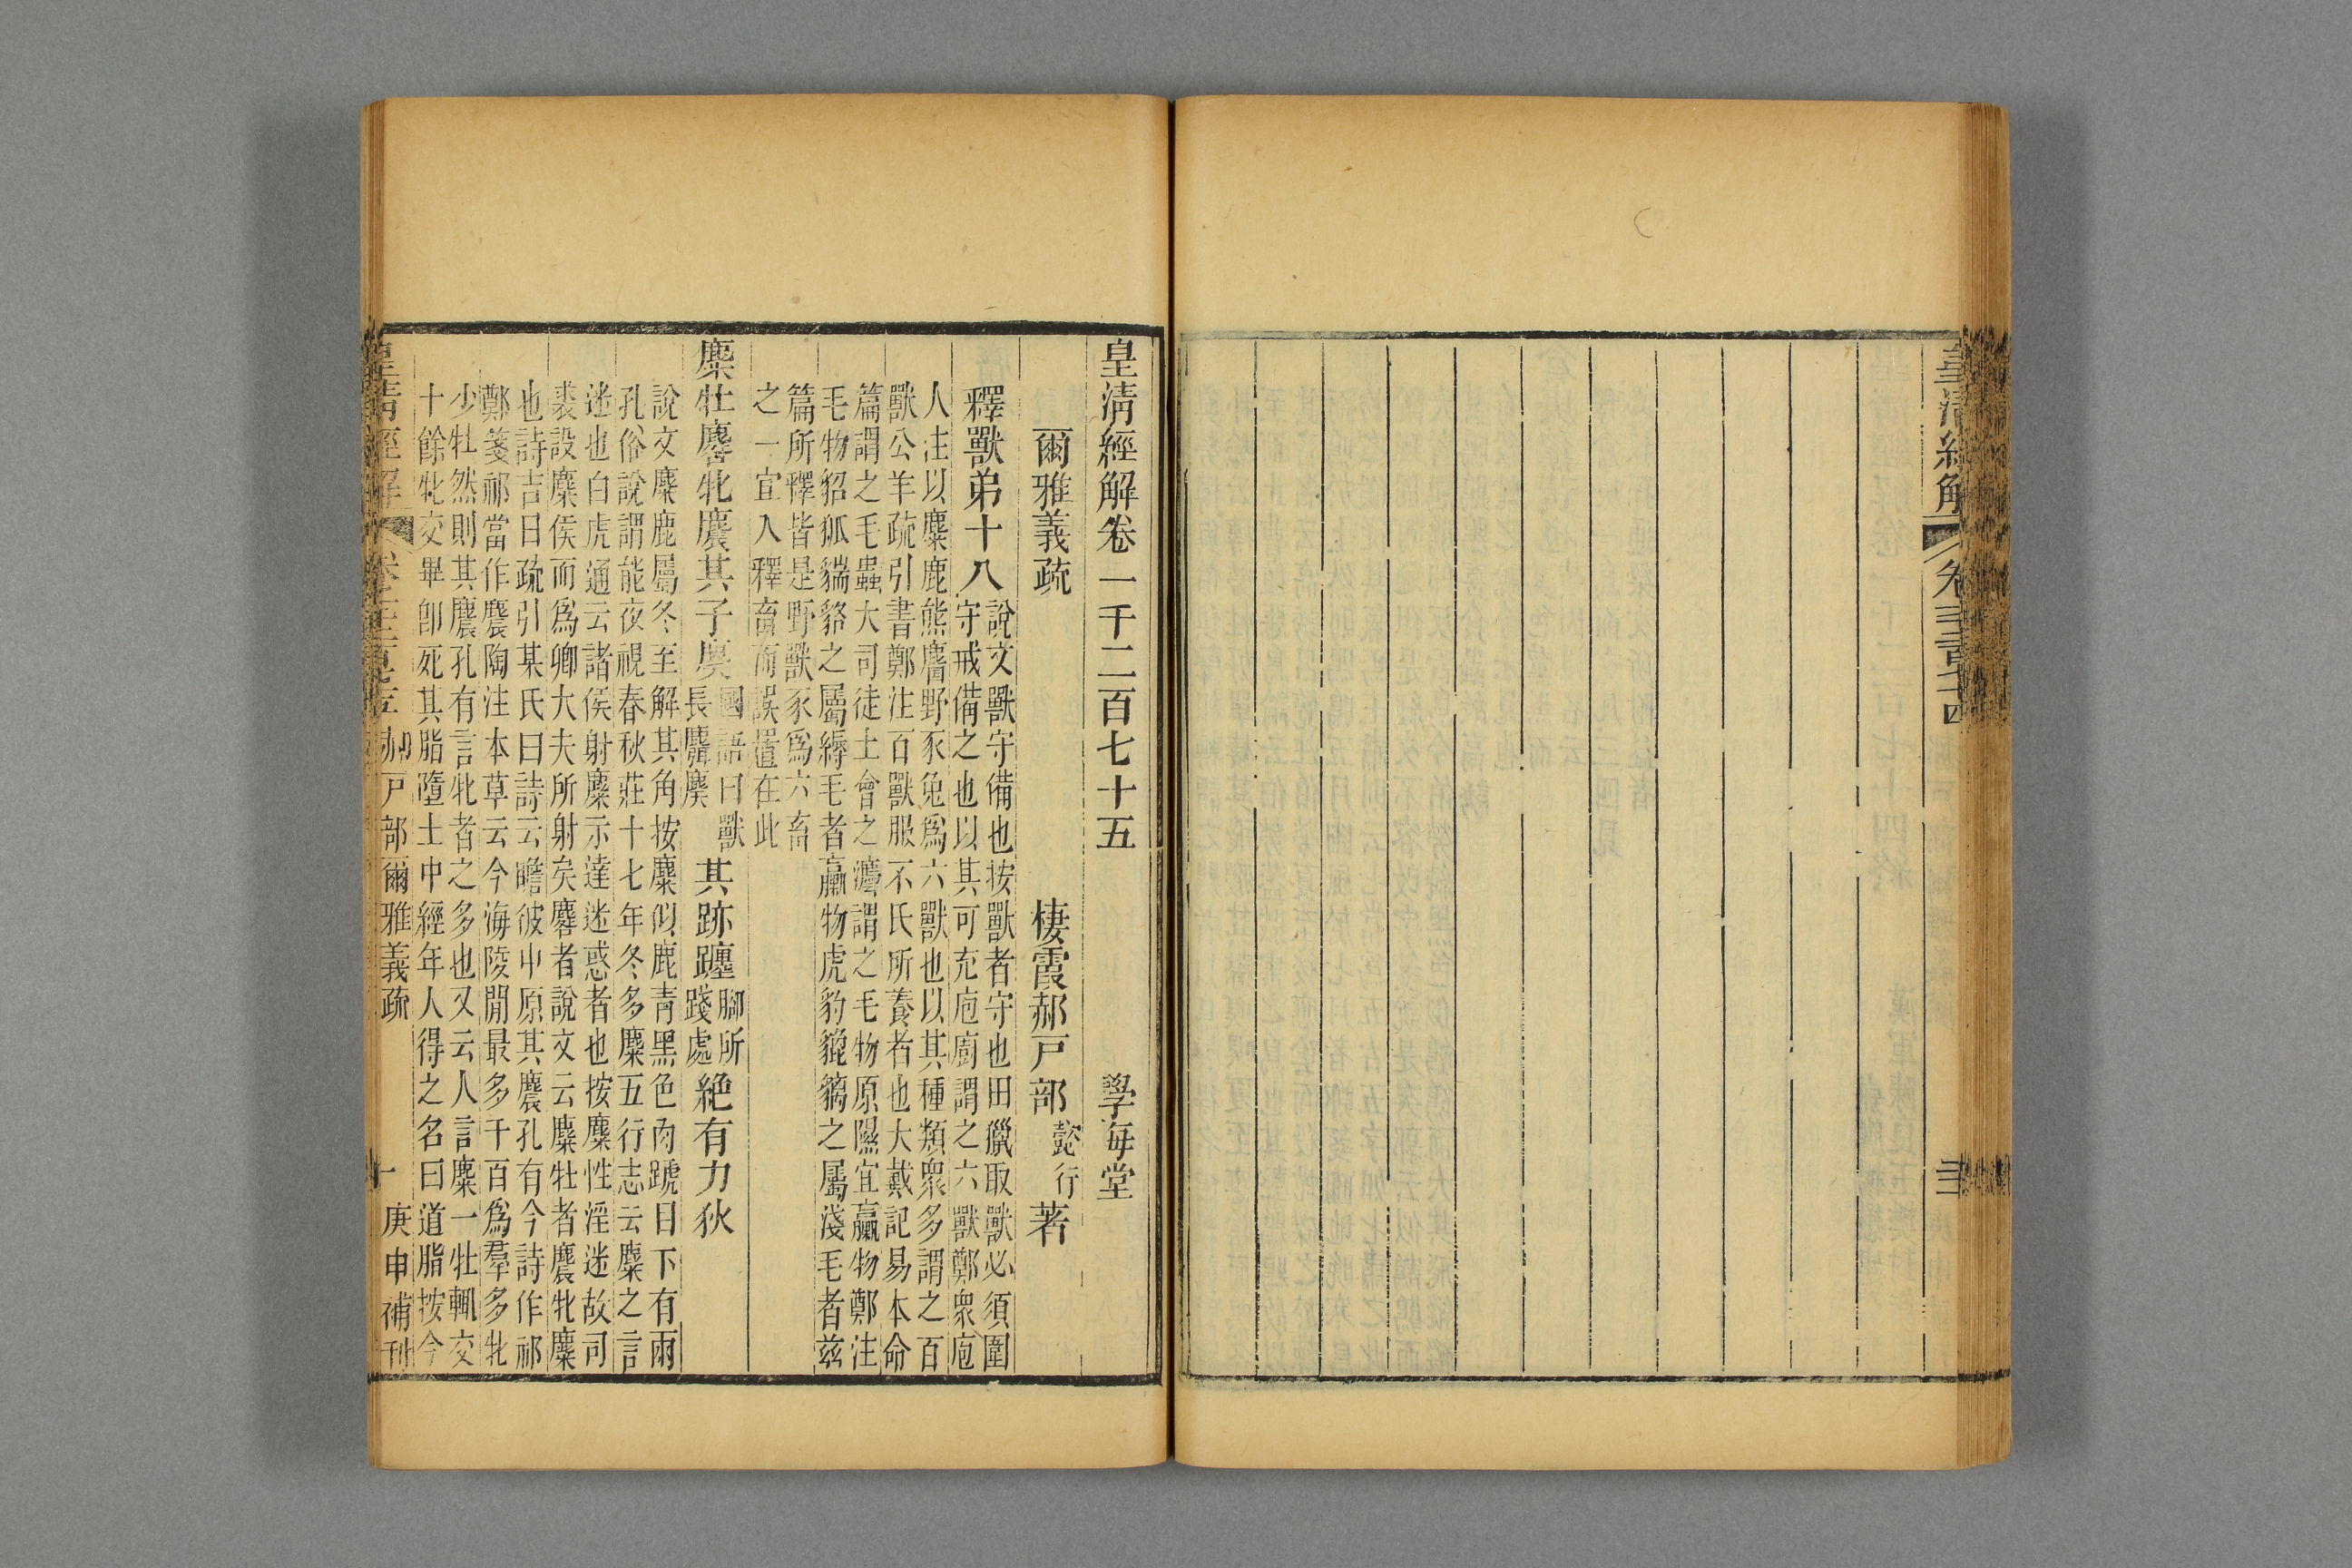 皇清經解卷一千二百七十五　學海堂
爾雅義疏　棲霞郝戸部懿行著
釋獸弟十八
說文獸守備也按獸者守也田獵取獸必須圍
守戒備之也以其可充庖廚謂之六獸鄭衆庖
人注以麋鹿熊麕野豕兔爲六獸也以其種類衆多謂之百
獸公羊疏引書鄭注百獸服不氏所養者也大戴記易本命
篇謂之毛蟲大司徒土會之灋謂之毛物原隰宜臝物鄭注
毛物貂狐貒貉之屬縟毛者臝物虎豹貔貐之屬淺毛者兹
篇所釋皆是野獸豕爲六畜
之一宜入釋畜而誤置在此
麋牡麔牝麎其子䴠
國語曰獸
長麛䴠
其跡躔
脚所
踐處
絶有力狄
說文麋鹿屬冬至解其角按麋似鹿青黑色肉蹏目下有兩
孔俗說謂能夜視春秋莊十七年冬多麋五行志云麋之言
迷也白虎通云諸侯射麋示達迷惑者也按麋性淫迷故司
裘設麋侯而爲卿大夫所射矣麔者說文云麋牡者麎牝麋
也詩吉日疏引某氏曰詩云瞻彼中原其麎孔有今詩作祁
鄭箋祁當作麎陶注本草云今海陵閒最多千百爲羣多牝
少牡然則其麎孔有言牝者之多也又云人言麋一牡輒交
十餘牝交畢卽死其脂墮土中經年人得之名曰道脂按今
皇清經解　卷　郝戸部爾雅義疏　一　庚申補刊
皇清經解　卷